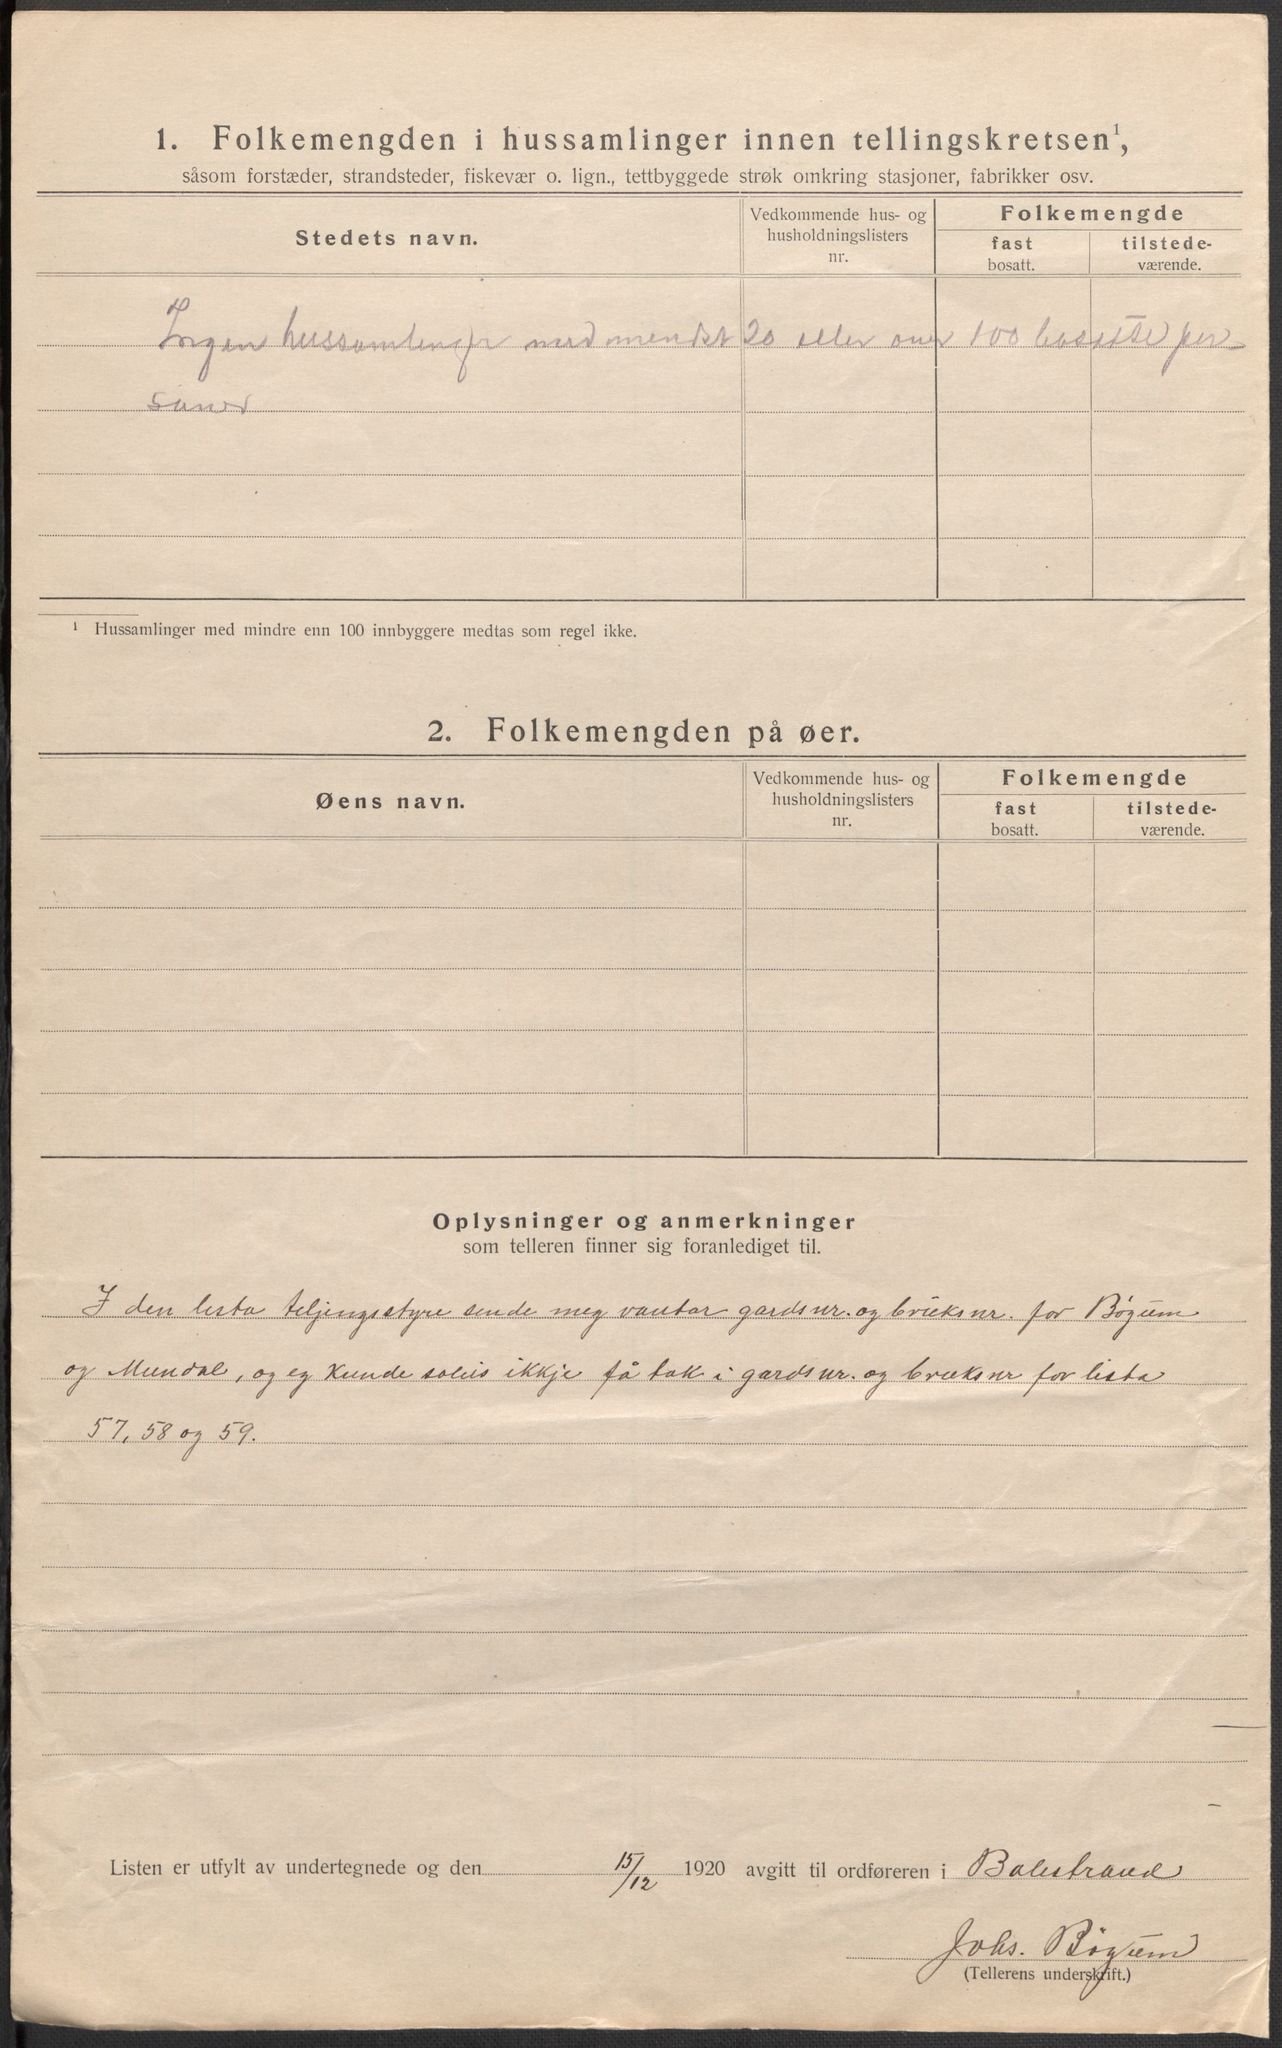 1. Folkemengden i hussamlinger innen tellingskretsen¹,
såsom forstæder, strandsteder, fiskevær o. lign., tettbyggede strøk omkring stasjoner, fabrikker osv.
Stedets navn.
Vedkommende hus- og
husholdningslisters
nr.
Folkemengde
fast
bosatt.
tilstede-
værende.
Ingen hussamlingr med mendst 20 eller over 100 bosatte per-
soner
¹ Hussamlinger med mindre enn 100 innbyggere medtas som regel ikke.
2. Folkemengden på øer.
Øens navn.
Vedkommende hus- og
husholdningslisters
nr.
Folkemengde
fast
bosatt.
tilstede-
værende.
Oplysninger og anmerkninger
som telleren finner sig foranlediget til.
I den lista teljingsstyre sende meg vantar gardsnr. og bruksnr. for Bøyum
og Mundal, og eg kunde soleis ikkje få tak i gardsnr. og bruksnr for lista
57, 58 og 59.
Listen er utfylt av undertegnede og den 15/12 1920 avgitt til ordføreren i Balestrand
Johs. Bøyum
(Tellerens underskrift.)